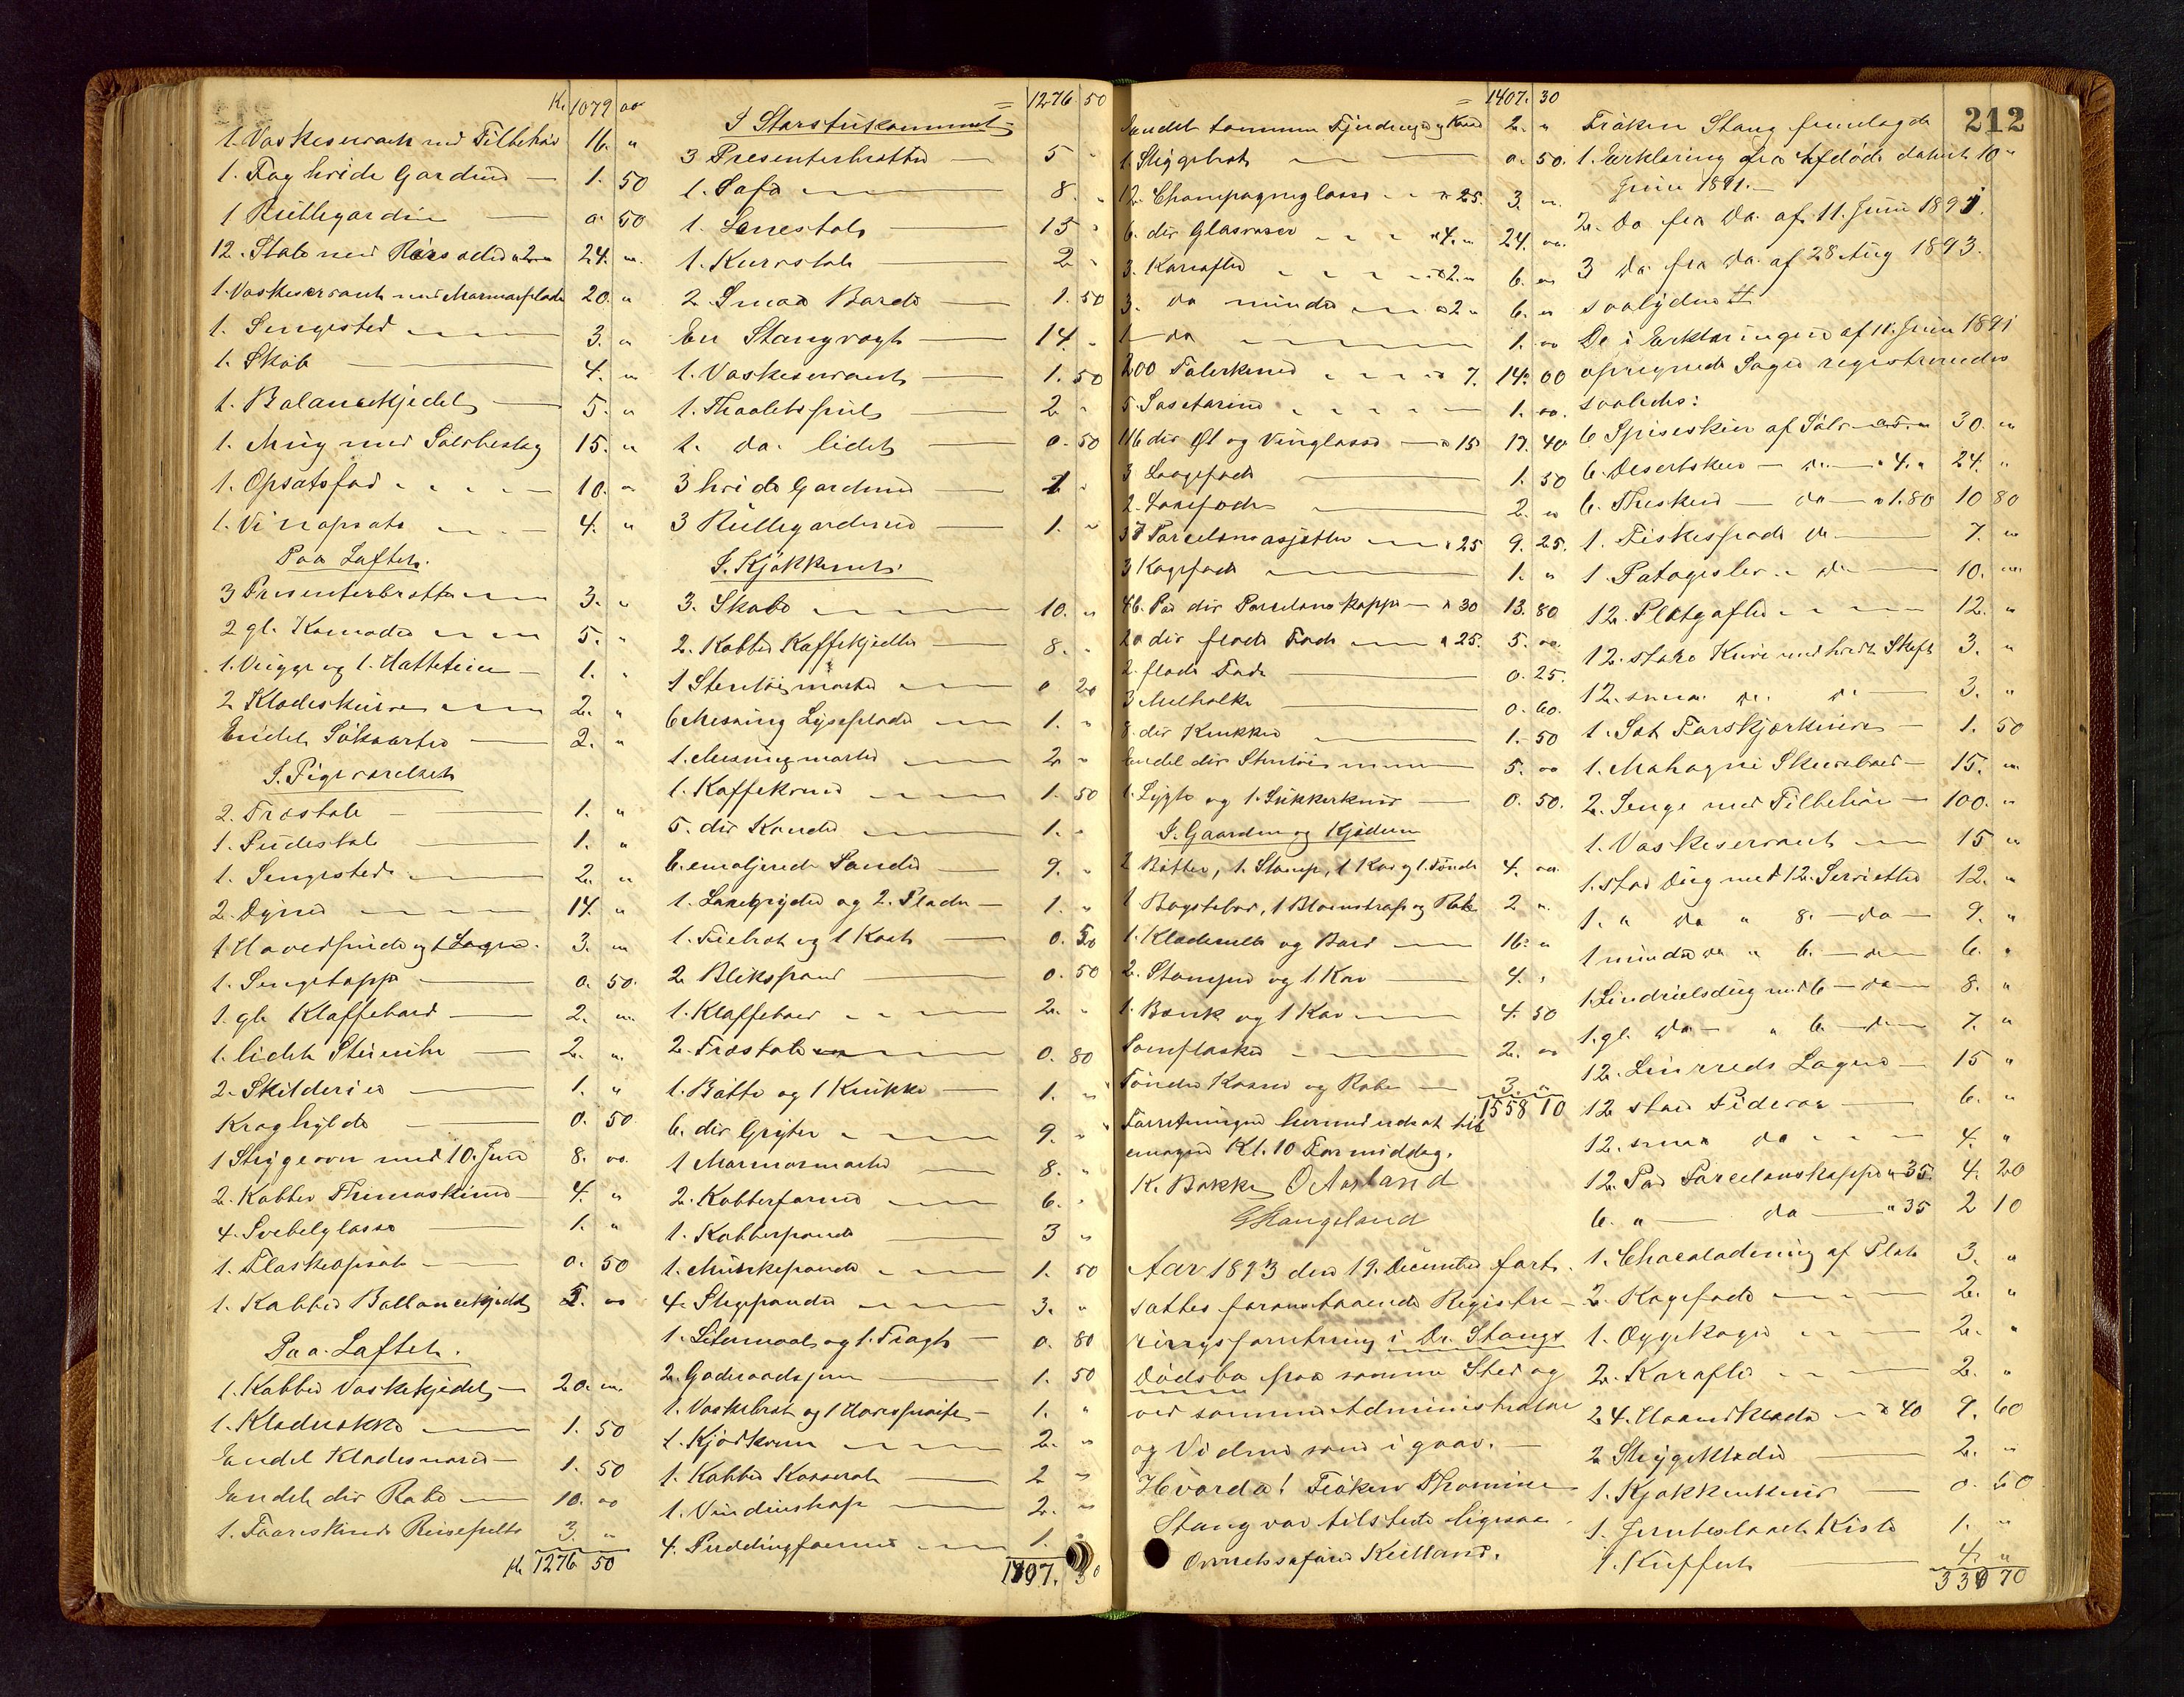 Kr. 1079 00
1. Vaskeservant med Tilbehør 16. "
1. Fag hvide Gardiner 1. 50
1 Rullegardin 0. 50
12. Stole med Rørsæder a 2 24. "
1. Vaskeservant med Marmorplade 20. "
1. Sengested 3. "
1. Skab 4. "
1. Balancekjedel 5. "
1. Mug med Sølvbeslag 15. "
1. Opsatsfad 10. "
1. Vinopsats 4. "
Paa Loftet.
3 Presenterbrætter 3. "
2 gl. Komoder 5. "
1. Vugge og 1. Hatteteine 1. "
2 Klædeskurve 2. "
Endel Søkarter 2. "
I. Pigeværelset
2. Træstole 1. "
1. Pudestol 1. "
1. Sengested 2. "
2. Dyner 14. "
1 Hovedpude og 1 Lagen 3. "
1. Sengetæppe 0. 50.
1. gl. Klaffebord 2. "
1. lidet Skrin 2. "
2. Skilderier 1. "
Kraghylde 0. 50
1 Strygeovn med 10. Jern 8. 00
2. Kobber Themaskiner 4. "
4. Svebelglasse 1. "
1. Flaskeopsats 0. 50
1. Kobber Ballancekjedel 5. 00
Paa Loftet.
1. Kobber Vaskekjedel 20. "
1. Klæderokke 1. 50
Endel Klædesnorer 1. 50
Endel div Rabe 10. 00
1. Faareskinds Reisepelts 3. "
Kr 1276 50
= 1276 50
I Storstuekammeret
3 Presenterbrætter 5 "
1. Sofa 8. "
1. Lænestol 15 "
1. Kurvstol 2 "
2. Smaa Borde 1. 50
En Stangvægt 14. "
1. Vaskeservant 1. 50
1. Thoaletspeil 2 "
1. do. lidet 0. 50
3 hvide Gardiner 2 "
3 Rullegardiner 1. "
I. Kjøkkenet.
3. Skabe 10. "
2. Kobber Kaffekjedler 8. "
1 Stentøimorter 0 20
6 Messing Lyseplader 1. "
1. Messingmorter 2 "
1. Kaffekværn 1. 50
5. div Kander 1. "
6. emaljerede Pander 9. "
1. Laxegryde og 2. Plader 1. "
1. Fiebræt og 1 Kost 0. 50
2. Blikspand 0. 50
1. Klaffebord 2. "
2. Træstole 0. 80
1. Bøtte og 1 Krukke 1. "
6. div Gryter 9. "
1 Marmormorter 8. "
2. Kobberformer 6. "
1. Kobberpande 3 "
1. Munkepande 1. 50
4. Stegepander 3. "
1. Litermaal og 1. Tragt 0. 80
2. Goderaadsjern 1. 50
1. Vaskebræt og 1 Haresprøite 1. "
1. Kjødkværn 2. "
1. Kobber Kasserol 2 "
1. Vinduskop 2. "
4. Puddingformer 1. "
1407. 30
= 1407. 30
Endel tomme Fjerdinger og Kar 2. "
1. Strygebræt 0. 50.
12. Champagneglasse a 25. 3. "
6. div Glasvaser a 4. " 24. 00.
3. Karafler a 2. " 6. "
3. do mindre a 2 " 6. "
1 do 1. 00
200 Talerkener a 7. 14. 00
5. Saseterriner 1. 00.
116 div Øl og Vinglasse a 15 17. 40
3 Laagefade 1. 50
2. Laxefade 2. "
37 Porcelænsasjetter a 25 9. 25.
3 Kagefade 1. "
46. Par div Porcelæns kopper a 30 13. 80
20 div flade Fade a 25. 5. 00.
2. flade Fade 0. 25.
3 Melkolker 0. 60.
8. div Krukker 1. 50
Endel div Stentøi 5. 00
1. Lygte og 1. Sukkerkniv 0. 50.
I. Gaarden og Kjelderen
2 Bøtter, 1. Stamp, 1 Kar og 1. Tønde 4. 00
1 Bagstebor, 1 Blomstrap og Rok 2 "
1. Klæderulle og Bord 16. "
2. Stamper og 1 Kar 4. "
1. Bænk og 1 Kar 4. 50
Tomflasker 2. 00
Tønder Kasser og Rabe 3. "
1558 10
Forretningen hermed udsat til
imorgen Kl. 10 Formiddag.
K. Bakke O Aarland
G Stangeland
Aar 1893 den 19. December fort-
sattes foranstaaende Registre-
ringsforretning i Dr. Stangs
Dødsbo paa samme Sted og
ved samme Administrator
og Vidner som i gaar.
Hvorda! Frøken Thomine
Stang var tilstede ligesaa
Overretssagfører Kielland.
212
Frøken Stang fremlagde
1. Erklæring fra Afdøde dateret 10
Juni 1891.
2. Do fra Do. af 11. Juni 1891.
3 Do fra Do. af 28 Aug 1893.
saalydende #
De i Erklæringen af 11. Juni 1891
opregnede Sager registreredes
saaledes:
6 Spiseskeer af Sølv a 5. " 30. "
6. Desertskeer do a 4. " 24. "
6. Theskeer do a 1.80 10 80
1. Fiskespade do 7. "
1. Potageslev do 10. "
12. Pletgafler 12. "
12. store Knive med hvidt Skaft 3. "
12. smaa do. do 3. "
1. Sæt Forskjærknive 1. 50
1. Mahogni Skrivebord 15. "
2. Senge med Tilbehør 100. "
1. Vaskeservant 15 "
1. stor Dug med 12. Servietter 12. "
1. " do " 8. do 9. "
1 mindre do " 6. do 6. "
1. Lindrielsdug med 6 do 8. "
1. gl. do " 6 do 7. "
12. Linrreds Lagner 15 "
12 store Pudevar 6. "
12. smaa do 4. "
12. Par Porcelænskopper a 35. 4. 20
6. " do " 35 2 10
1. Chocoladering af Plet 3. "
2. Kagefade 2. "
1. Æggekoger 2. "
2. Karafler 2. "
24. Haandklæder a 40 9. 60
2 Strygeklæder 2. "
1. Kjøkkenkniv 0. 50
1. Jernbeslaaet Kiste 1. "
1. Kuffert 4. "
330 70